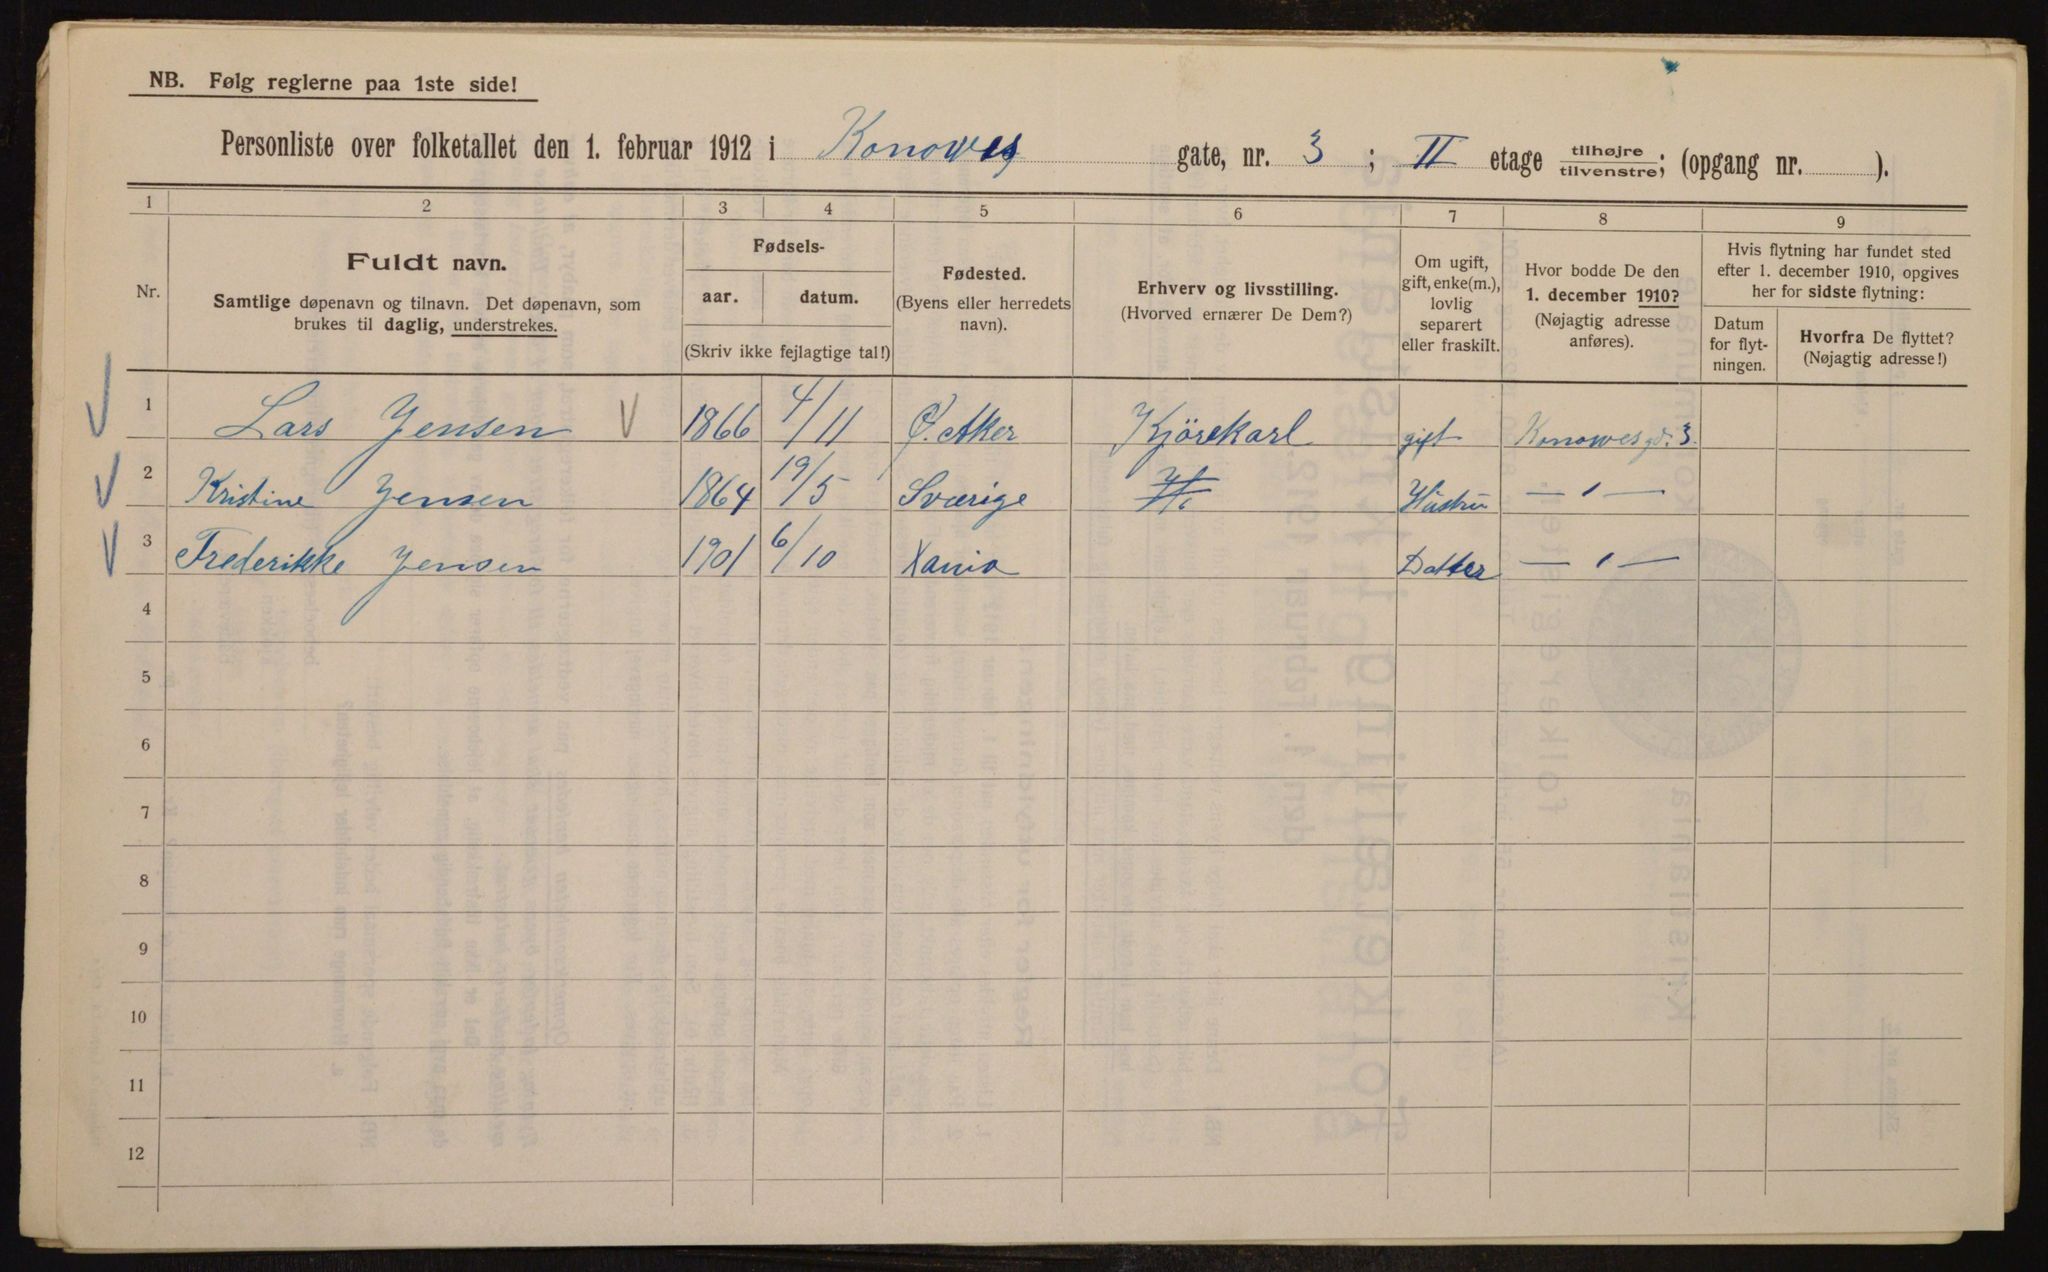 NB. Følg reglerne paa 1ste side!
Personliste over folketallet den 1. februar 1912 i Konowes gate, nr. 3 ; II etage tilhøjre tilvenstre; (opgang nr. ).
1 2 3 4 5 6 7 8 9
Nr.
Fuldt navn.
Samtlige døpenavn og tilnavn. Det døpenavn, som
brukes til daglig, understrekes.
Fødsels-
aar. datum.
(Skriv ikke fejlagtige tal!)
Fødested.
(Byens eller herredets
navn).
Erhverv og livsstilling.
(Hvorved ernærer De Dem?)
Om ugift,
gift, enke(m.),
lovlig
separert
eller fraskilt.
Hvor bodde De den
1. december 1910?
(Nøjagtig adresse
anføres).
Hvis flytning har fundet sted
efter 1. december 1910, opgives
her for sidste flytning:
Datum
for flyt-
ningen.
Hvorfra De flyttet?
(Nøjagtig adresse!)
1 Lars Jensen 1866 4/11 Ø. Aker Kjörekarl gift Konowes gd. 3.
2 Kristine Jensen 1864 19/5 Sværige Hustru — " —
3 Frederikke Jensen 1901 6/10 Xania Datter — " —
4
5
6
7
8
9
10
11
12